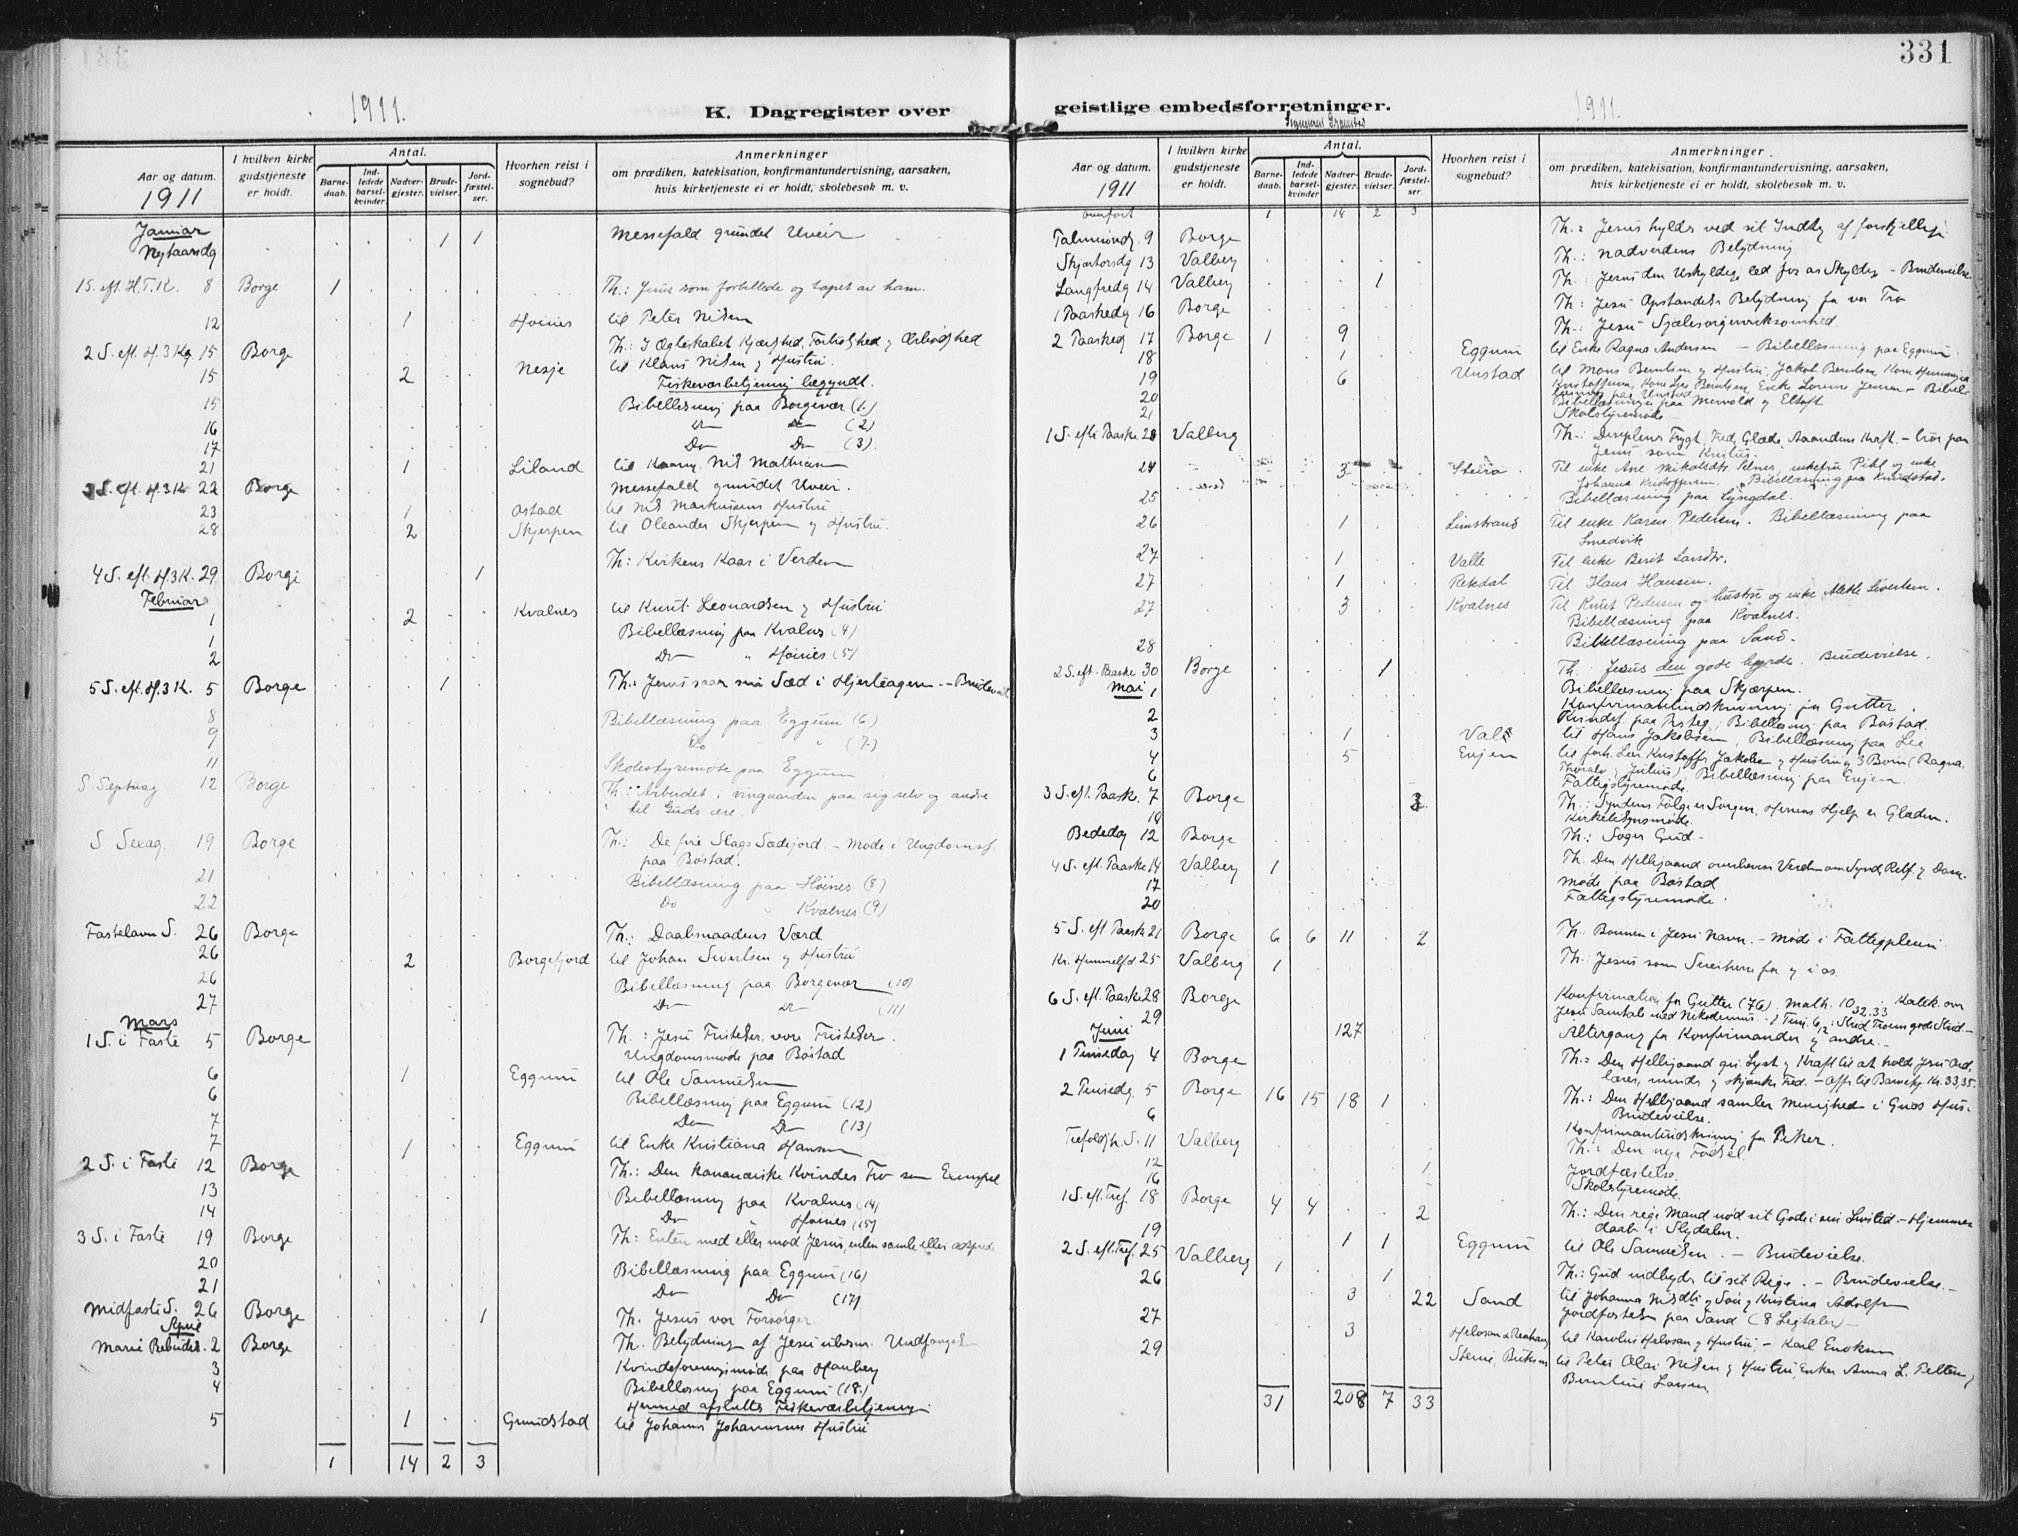 331
1911.
K. Dagregister over
Aar og datum. 1911
I hvilken kirke gudstjeneste er holdt.
Antal.
Barnedaab.
Indledede barselkvinder.
Nadvergjester.
Brudevielser.
Jordfæstelser.
Hvorhen reist i sognebud?
Anmerkninger
om prædiken, katekisation, konfirmantundervisning, aarsaken,
hvis kirketjeneste ei er holdt, skolebesøk m. v.
Januar
Nytaarsdg 1 1 Messefald grundet Uveir
1 S. eft. H.T.K. 8 Borge 1 Th.: Jesus som forbillede og tapet av ham.
12 1 Høines til Peter Nilsen
2 S. eft. H.3 Kg 15 Borge Th.: I Ægteskabet Kjærlighed, Fortrolighed og Ærlighed
15 2 Nesje til Klaus Nilsen og Hustru
Fiskeværbetjening begyndt.
15 Bibellæsning paa Borgevær (1.)
16 Do Do (2)
17 Do Do (3).
21 1 Liland til Nils Mathisen
3 S. eft. H.3 K 22 Borge Messefald grundet Uveir.
23 1 Ostad til Nils Markussens Hustru
28 2 Skjerpen til Oleander Skjerpen og Hustru
4 S. eft. H3K. 29 Borge 1 Th: Kirkens Kaar i Verden
Februar
1 2 Kvalnes til Knut Leonardsen og Hustru
1 Bibellæsning paa Kvalnes (4)
2 Do " Høines (5)
5 S. eft. H.3 K. 5 Borge 1 Th.: Jesus saar sin Sæd i Hjerteageren. - Brudeviels
8 Bibellæsning paa Eggum (6)
9 Do " (7.)
11 Skolestyremøte paa Eggum
S Septuag 12 Borge Th.: Arbeidet i vingaarden paa sig selv og andre
til Guds ære.
S Sexag. 19 Borge Th.: De fire Slags Sædejord. - Møde i Ungdomsf.
paa Bøstad.
21 Bibellæsning paa Høines (8)
22 Do " Kvalnes (9)
Fastelavn S. 26 Borge Th.: Daabsnaadens Værd
26 2 Borgefjord til Johan Sivertsen og Hustru
26 Bibellæsning paa Borgevær (10)
27 Do Do (11)
Mars
1 S. i Faste 5 Borge Th.: Jesu Fristelser, vore Fristelser.
Ungdomsmøde paa Bøstad
6 1 Eggum til Ole Samuelsen
6 Bibellæsning paa Eggum (12)
7 Do Do (13)
7 1 Eggum til Enke Kristiana Hansen
2 S. i Faste 12 Borge Th.: Den kananæiske Kvindes Tro som Exempel
13 Bibellæsning paa Kvalnes (14)
14 Do " Høines (15)
3 S. i Faste 19 Borge Th: Enten med eller mod Jesus, enten samle eller adsprede
20 Bibellæsning paa Eggum (16)
21 Do Do (17)
Midfaste S. 26 Borge 1 Th. Jesus vor Forsørger
April
Marie Bebudel. 2 Borge Th. Betydning af Jesu Undfangelse
3 Kvindeforeningsmøde paa Hauberg
4 Bibellæsning paa Eggum (18.)
Hermed afsluttes Fiskeværbetjening
5 1 Grundstad til Johannes Johannesens Hustru
1 14 2 3
geistlige embedsforretninger.
1911.
Aar og datum. 1911
I hvilken kirke gudstjeneste er holdt.
Antal.
Barnedaab.
Indledede barselkvinder.
Nadvergjester.
Brudevielser.
Jordfæstelser.
Hvorhen reist i sognebud?
Anmerkninger
om prædiken, katekisation, konfirmantundervisning, aarsaken,
hvis kirketjeneste ei er holdt, skolebesøk m. v.
Overført 1 14 2 3
Palmesøndg. 9 Borge Th.: Jesus hyldes ved sit Indtog af forskjellige
Skjærtorsdg 13 Valberg Th.: Nadverdens Betydning
Langfredg 14 Valberg 1 Th: Jesus den Uskyldige led for os Skyldige - Brudevielse
1 Paaskedg 16 Borge Th: Jesu Opstandelses Betydning for vor Tro
2 Paaskedg 17 Borge 1 9 Th.: Jesu Sjælesørgervirksomhed.
18 1 Eggum til Enke Ragna Andersen - Bibellæsning paa Eggum.
19 6 Unstad til Mons Berntsen og Hustru, Jakob Berntsen,
Enke Lorense Jensen - Bibel
læsning paa Unstad
20 Bibellæsning paa Mervold og Eltoft
21 Skolestyremøde
1 S. efter Paaske 23 Valberg Th.: Disciplenes Frygt, Fred, Glæde, Aandens Kraft. - tror paa
Jesus som Kristus.
24 3 Steira Til enke Ane Mikalsdtr. Selnes, enkefru Pihl og enke
Johanna Kristoffersen. Bibellæsning paa Knudstad.
25 Bibellæsning paa Lyngdal.
26 1 Limstrand Til enke Karen Pedersen. Bibellæsning paa
Smedvik
27 1 Valle Til enke Berit Larsdtr.
27 1 Rekdal Til Hans Hansen.
27 3 Kvalnes Til Knut Pedersen og hustru og enke Alette Sivertsen.
Bibellæsning paa Kvalnes.
28 Bibellæsning paa Sand.
2 S. eft. Paaske 30 Borge 1 Th. Jesus den gode hyrde. Brudevielse.
Mai
1 Bibellæsning paa Skjærpen.
Konfirmantindskrivning for Gutter.
2 Kvindef. paa Prsteg; Bibellæsning paa Bøstad.
3 1 Valle til Hans Jakobsen, Bibellæsning paa Lie
4 5 Evjen til Kristoffer Jakobsen og Hustru og 3 Børn (Ragna,
Thoralv, Julius) Bibellæsning paa Evjen.
6 Fattigstyremøde
3 S. eft. Paask. 7 Borge 3 Th.: Syndens Følge er Sorgen, Herrens Hjelp er Glæden.
10 Kirketilsynsmøde.
Bededag 12 Borge Th.: Søger Gud -
4 S. eft. Paaske 14 Valberg 1 Th. Den Helligaand overbeviser Verden om Synd, Retf. og Dom.
17 Møde paa Bøstad
20 Fattigstyremøde.
5 S. eft Paaske 21 Borge 6 6 11 2 Th. Bønnen i Jesu Navn. - Møde i Fattigpleien
Kr. Himmelfd 25 Valberg 1 Th.: Jesus som Seierherre for og i os
6 S. eft. Paaske 28 Borge Konfirmation for Gutter (76) Math. 10 32.33 Katek. over
Jesu Samtale med Nikodemus. - 1 Tim. 6,12: Strid Troens gode Strid. -
29 127 Altergang for Konfirmander og andre. -
Juni
1 Pinsedag 4 Borge Th.: Den Helligaand gir Lyst og Kraft til at holde Jesu Ord,
lærer, minder og skjænker Fred. -
2 Pinsedg. 5 Borge 16 15 18 1 Th.: Den Helligaand samler Menighed i Guds Hus.
Brudevielse.
6 Konfirmantindskrivning for Piker.
Trefoldigh. S. 11 Valberg Th.: Den nye Fødsel.
12 1 Jordfæstelse
16 Skolestyremøde.
1 S. eft. Tref. 18 Borge 4 4 2 Th.: Den rige Mand nød sit Gode i sin Livstid. - Hjemme
daab i Slydalen.
19 1 1 Eggum til Ole Samuelsen. - Brudevielse.
2 S. eft. Tref. 25 Valberg 1 1 Th.: Gud indbyder til sit Rige. - Brudevielse. -
26 3 22 Sand til Johanna Nilsdtr og Søn og Kristina Adolfsen
Jordfæstelse paa Sand (8 Ligtaler) -
27 3 til Karolius Helosan og Hustru, - Karl Enoksen
29 til Peter Olai Nilsen og Hustru, Enken Anna L. Pettersen,
Berntine Larsen.
31 208 7 33